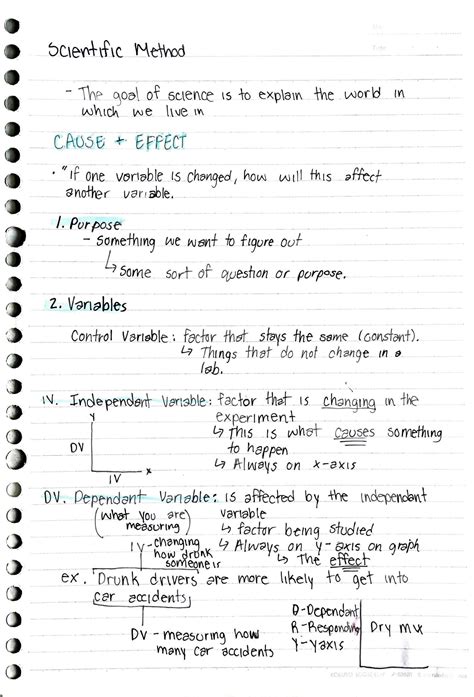 Scientific Method
- The goal of science is to explain the world in
which we live in
CAUSE + EFFECT
• "if one variable is changed, how will this affect
another variable.
1. Purpose
- Something we want to figure out
↳ Some sort of question or purpose.
2. Variables
Control Variable: factor that stays the same (constant).
↳ Things that do not change in a
lab.
IV. Independent Variable: factor that is changing in the
experiment
↳ this is what causes something
to happen
↳ Always on x-axis
Y
DV
IV
x
DV. Dependant Variable: is affected by the independant
variable
(What you are measuring)
↳ factor being studied
↳ Always on y-axis on graph
↳ The effect
IV-changing
how drunk
someone is
ex. Drunk drivers are more likely to get into
car accidents
DV - measuring how
many car accidents
D-Dependant
R-Responding
Y-Yaxis
Dry mix